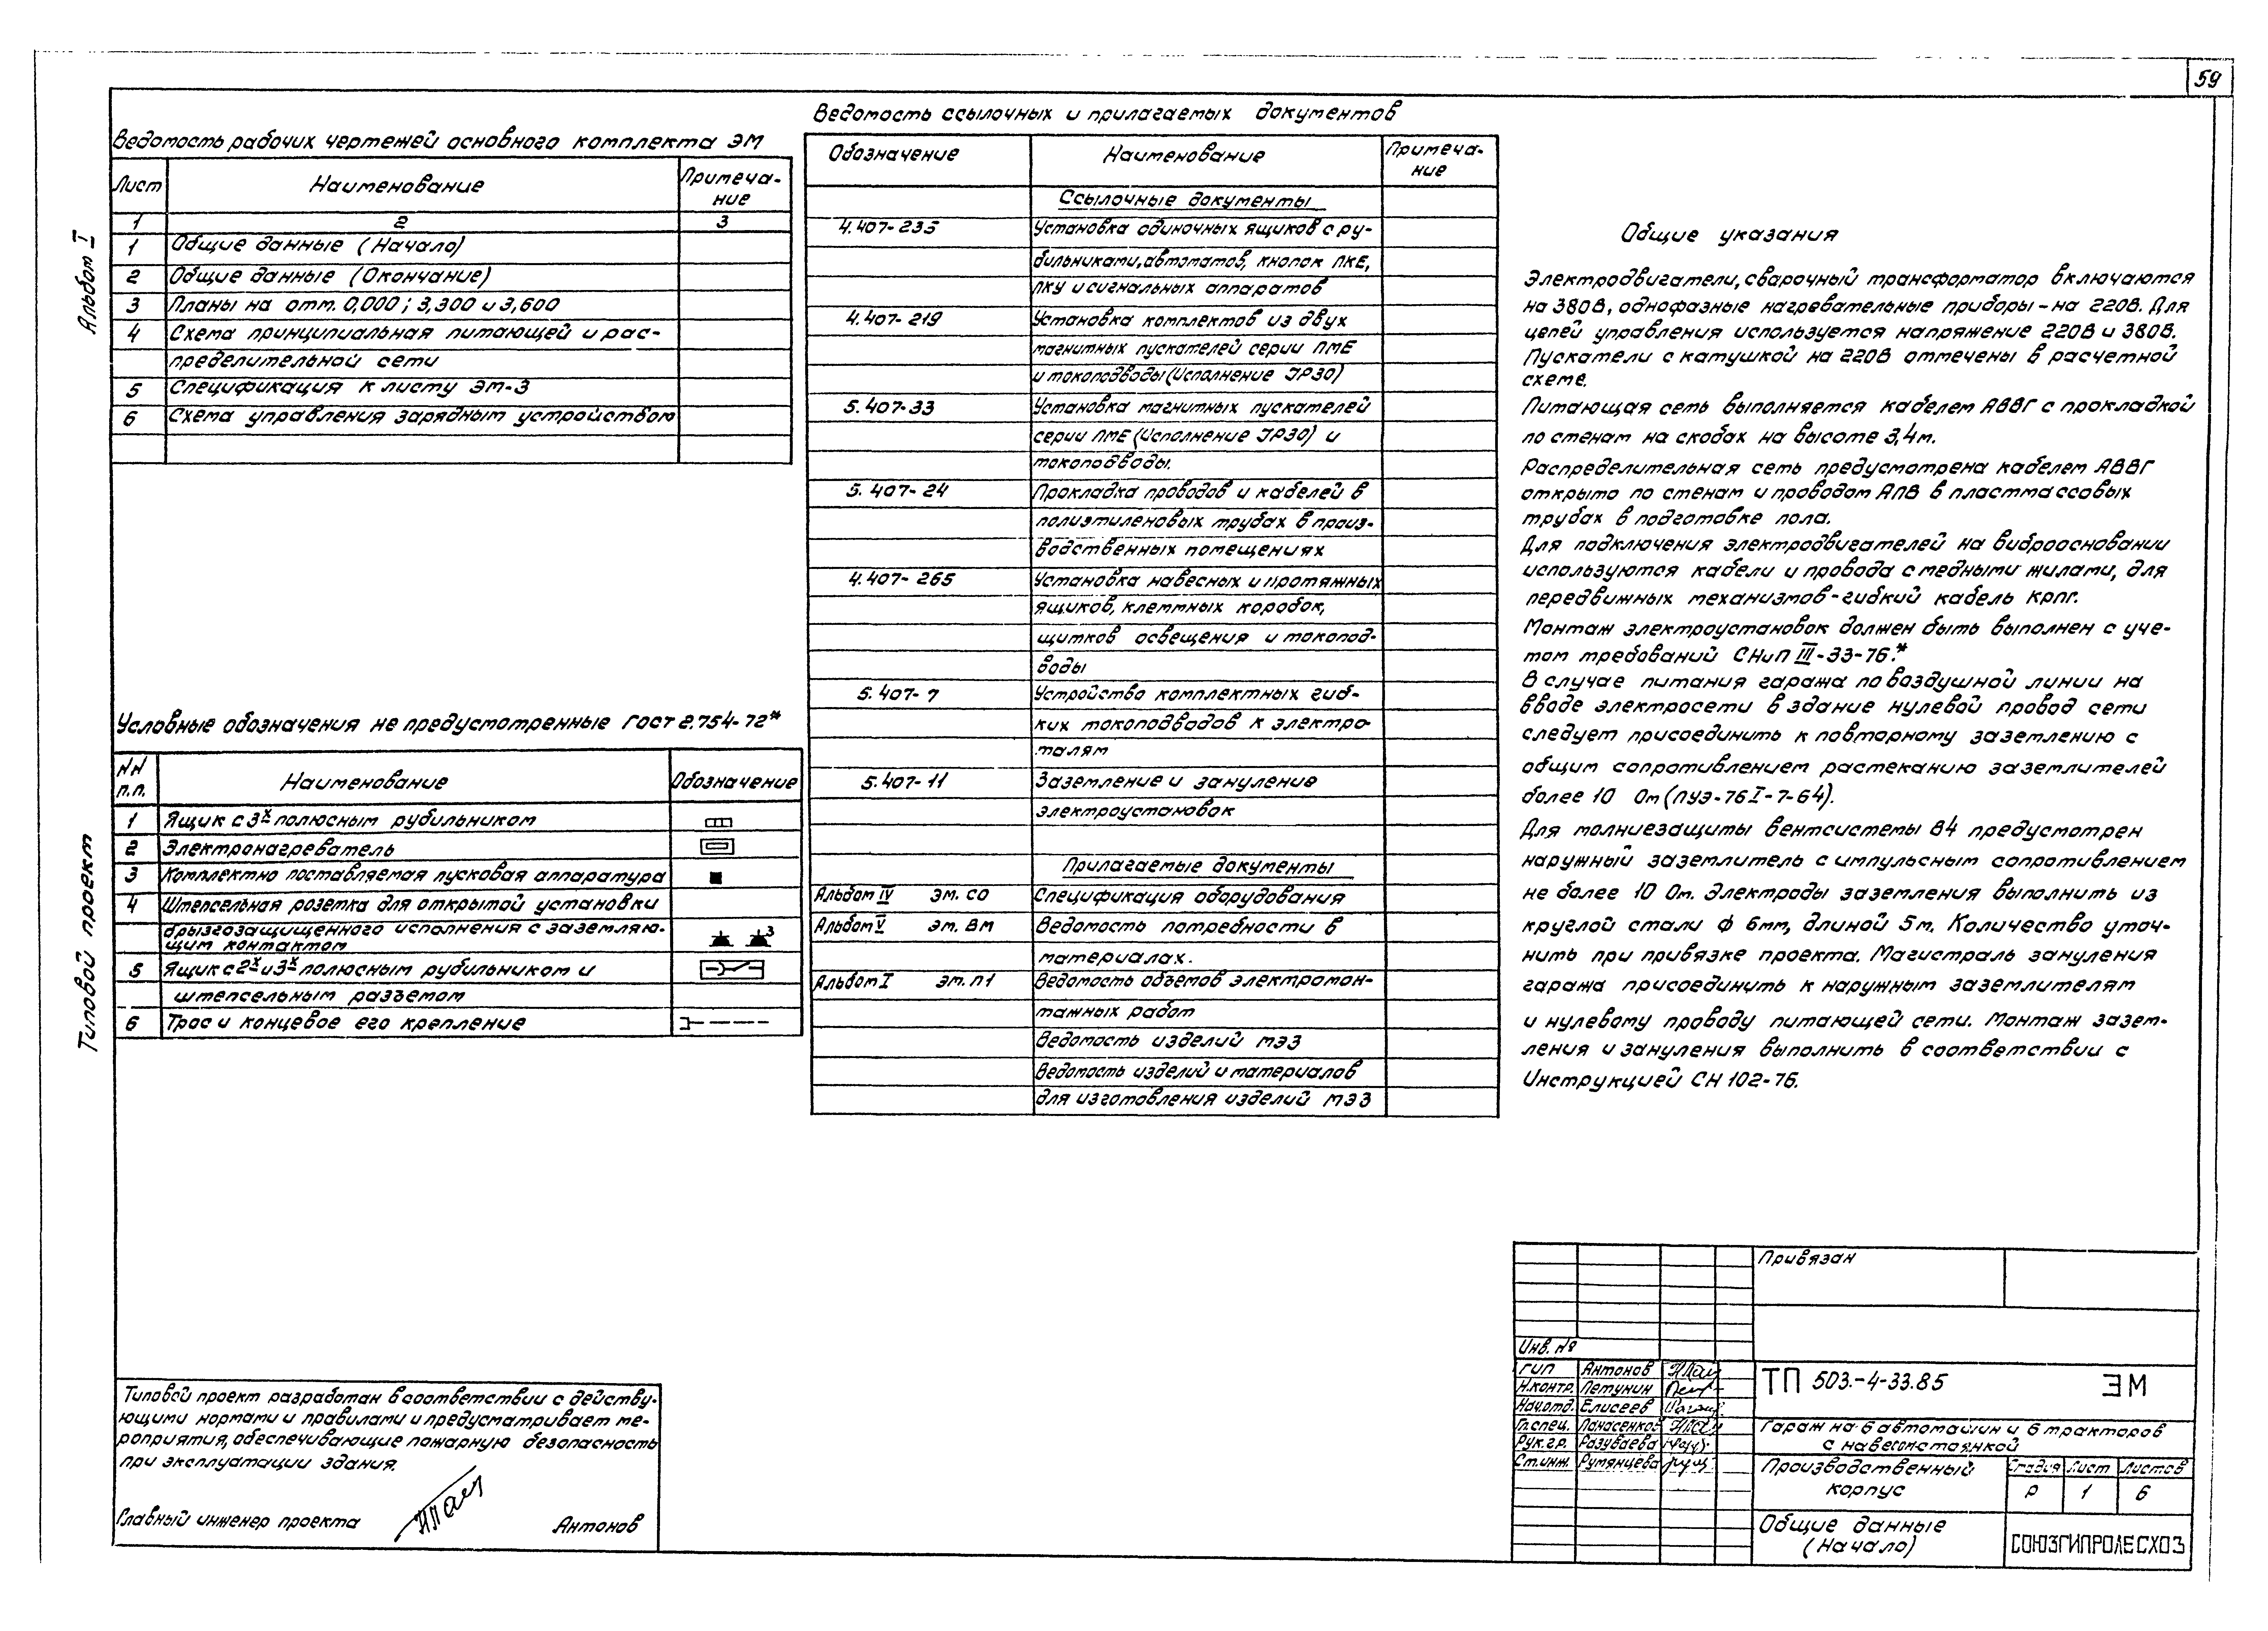 59
Альбом I
Типовой проект
Ведомость рабочих чертежей основного комплекта ЭМ
Лист
Наименование
Примеча-
ние
1 2 3
1 Общие данные (Начало)
2 Общие данные (Окончание)
3 Планы на отм. 0,000; 3,300 и 3,600
4 Схема принципиальная питающей и рас-
пределительной сети
5 Спецификация к листу ЭМ-3
6 Схема управления зарядным устройством
Условные обозначения не предусмотренные ГОСТ 2.754-72*
NN
п.п.
Наименование
Обозначение
1 Ящик с 3х полюсным рубильником
2 Электронагреватель
3 Комплектно поставляемая пусковая аппаратура
4 Штепсельная розетка для открытой установки
брызгозащищенного исполнения с заземляю-
щим контактом
3
5 Ящик с 2х и 3х полюсным рубильником и
штепсельным разъемом
6 Трос и концевое его крепление
Типовой проект разработан в соответствии с действу-
ющими нормами и правилами и предусматривает ме-
роприятия, обеспечивающие пожарную безопасность
при эксплуатации здания.
Главный инженер проекта Антонов
Ведомость ссылочных и прилагаемых документов
Обозначение
Наименование
Примеча-
ние
Ссылочные документы
4.407-235 Установка одиночных ящиков с ру-
бильниками, автоматов, кнопок ПКЕ,
ПКУ и сигнальных аппаратов
4.407-219 Установка комплектов из двух
магнитных пускателей серии ПМЕ
и токоподводы (Исполнение JP30)
5.407-33 Установка магнитных пускателей
серии ПМЕ (Исполнение JP30) и
токоподводы.
5.407-24 Прокладка проводов и кабелей в
полиэтиленовых трубах в произ-
водственных помещениях
4.407-265 Установка навесных и протяжных
ящиков, клеммных коробок,
щитков освещения и токопод-
воды
5.407-7 Устройство комплектных гиб-
ких токоподводов к электро-
талям
5.407-11 Заземление и зануление
электроустановок
Прилагаемые документы
Альбом IV ЭМ.СО Спецификация оборудования
Альбом V ЭМ.ВМ Ведомость потребности в
материалах.
Альбом I ЭМ.П1 Ведомость объемов электромон-
тажных работ
Ведомость изделий МЭЗ
Ведомость изделий и материалов
для изготовления изделий МЭЗ
Общие указания
Электродвигатели, сварочный трансформатор включаются
на 380В, однофазные нагревательные приборы - на 220В. Для
цепей управления используется напряжение 220В и 380В.
Пускатели с катушкой на 220В отмечены в расчетной
схеме.
Питающая сеть выполняется кабелем АВВГ с прокладкой
по стенам на скобах на высоте 3,4м.
Распределительная сеть предусмотрена кабелем АВВГ
открыто по стенам и проводом АПВ в пластмассовых
трубах в подготовке пола.
Для подключения электродвигателей на виброосновании
используются кабели и провода с медными жилами, для
передвижных механизмов - гибкий кабель КРПГ.
Монтаж электроустановок должен быть выполнен с уче-
том требований СНиП III-33-76.*
В случае питания гаража по воздушной линии на
вводе электросети в здание нулевой провод сети
следует присоединить к повторному заземлению с
общим сопротивлением растеканию заземлителей
более 10 Ом (ПУЭ-76 I-7-64).
Для молниезащиты вентсистемы В4 предусмотрен
наружный заземлитель с импульсным сопротивлением
не более 10 Ом. Электроды заземления выполнить из
круглой стали ф 6мм, длиной 5м. Количество уточ-
нить при привязке проекта. Магистраль зануления
гаража присоединить к наружным заземлителям
и нулевому проводу питающей сети. Монтаж зазем-
ления и зануления выполнить в соответствии с
Инструкцией СН 102-76.
Привязан
Инв. №
ГИП Антонов
Н.контр. Летунин
Нач.отд. Елисеев
Гл.спец. Панасенков
Рук.гр. Разуваева
Ст.инж. Румянцева
ТП 503.-4-33.85 ЭМ
Гараж на 6 автомашин и 6 тракторов
с навесом-стоянкой
Производственный
корпус
Стадия Лист Листов
Р 1 6
Общие данные
(Начало)
СОЮЗГИПРОЛЕСХОЗ